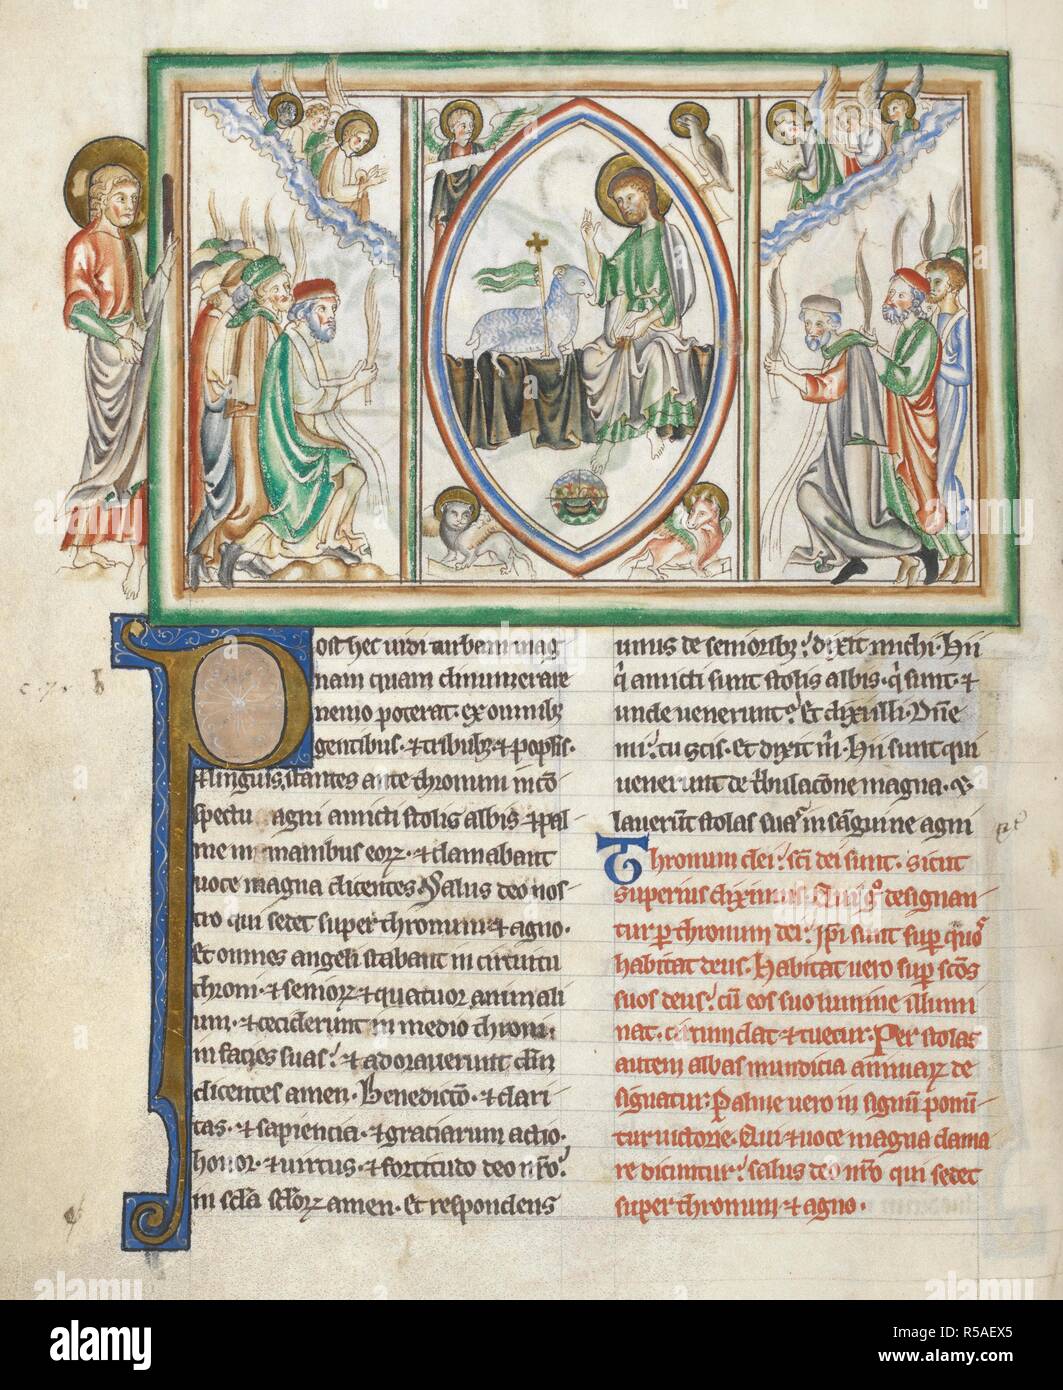 Post hec uidi turbam mag
nam quam dinumerare
nemo poterat· ex omnibꝫ
gentibus· ⁊ tribubꝫ· ⁊ poplis·
⁊ linguis, stantes ante thronum in cõ
spectu agni amicti stolis albis· ⁊ pal
me in manibus eoꝝ· ⁊ clamabant
uoce magna dicentes· Salus deo nos
tro qui sedet super thronum ⁊ agno·
Et omnes angeli stabant in circuitu
throni· ⁊ senioꝝ ⁊ quatuor animali
um· ⁊ ceciderunt in medio throni·
in facies suas· ⁊ adorauerunt dm̃
dicentes amen· Benedictõ· ⁊ clari
tas· ⁊ sapiencia· ⁊ graciarum actio·
honor· ⁊ uirtus· ⁊ fortitudo deo nr̃o·
in sc̃la sc̃loꝝ amen· Et respondens
unus de senioribꝫ· dixit michi· Hii
q̃ amicti sunt stolis albis· q̃ sunt· ⁊
unde uenerunt· Et dixi illi· Dñe
mi· tu scis· Et dixit m̃· Hii sunt qui
uenerunt de tribulacõne magna· ⁊
lauerũt stolas suas in sãguine agni
Thronum dei· sc̃i dei sunt· sicut
superius diximus· Qui g̊ designan
tur ꝑ thronum dei· ip̃i sunt suꝑ quos
habitat deus· Habitat uero suꝑ sc̃os
suos deus· cũ eos suo lumine illumi
nat· circundat ⁊ tuetur· Per stolas
autem albas mundicia animaꝝ de
signatur· Palme uero in signũ ponũ
tur uictorie· Qui ⁊ uoce magna clama
re dicuntur· salus deo nr̃o qui sedet
super thronum ⁊ agno·
alamy
Image ID: R5AEX5
www.alamy.com